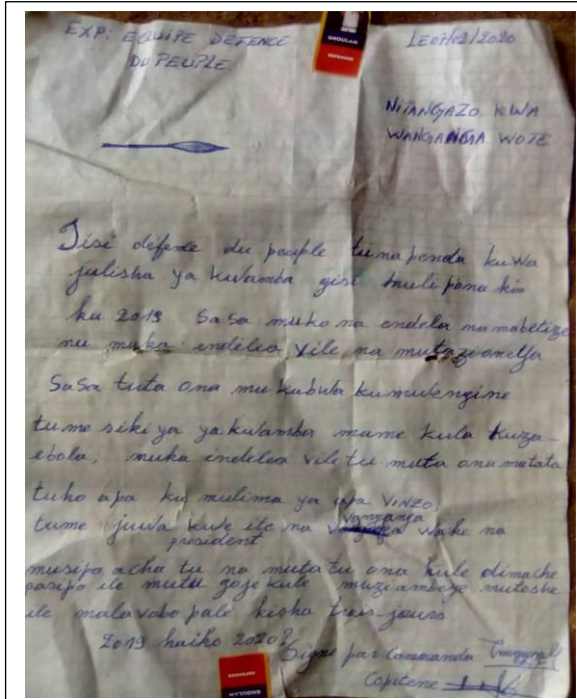 EXP: EQUIPE DEFENCE
DU PEUPLE
LE 07/02/2020
GHOULAM
NITANGAZO KWA
WANGANGA WOTE
Sisi defence du peuple tuna penda kuwa
julisha ya kwamba gisi muli pona ku
ku 2019 Sasa muko na endela na mabetize
nu muka endelea vile na
Sasa tuta ona mu kubwa kumulengine
tume siki ya ya kwamba mume kula kuza-
ebola, muka endelea vile tu muta ona matata
tuko apa ku mulima ya apa VINZO,
tume juwa kuve ile na vanganga wake na
president
musipo acha tu na mutatu ona kule dimache
pasipo ile mutu goje kule muziambeye mutoshe
ile malavabo pale kisha trois-jours
2019 haiko 2020?
Signé par Commanda
Capitene